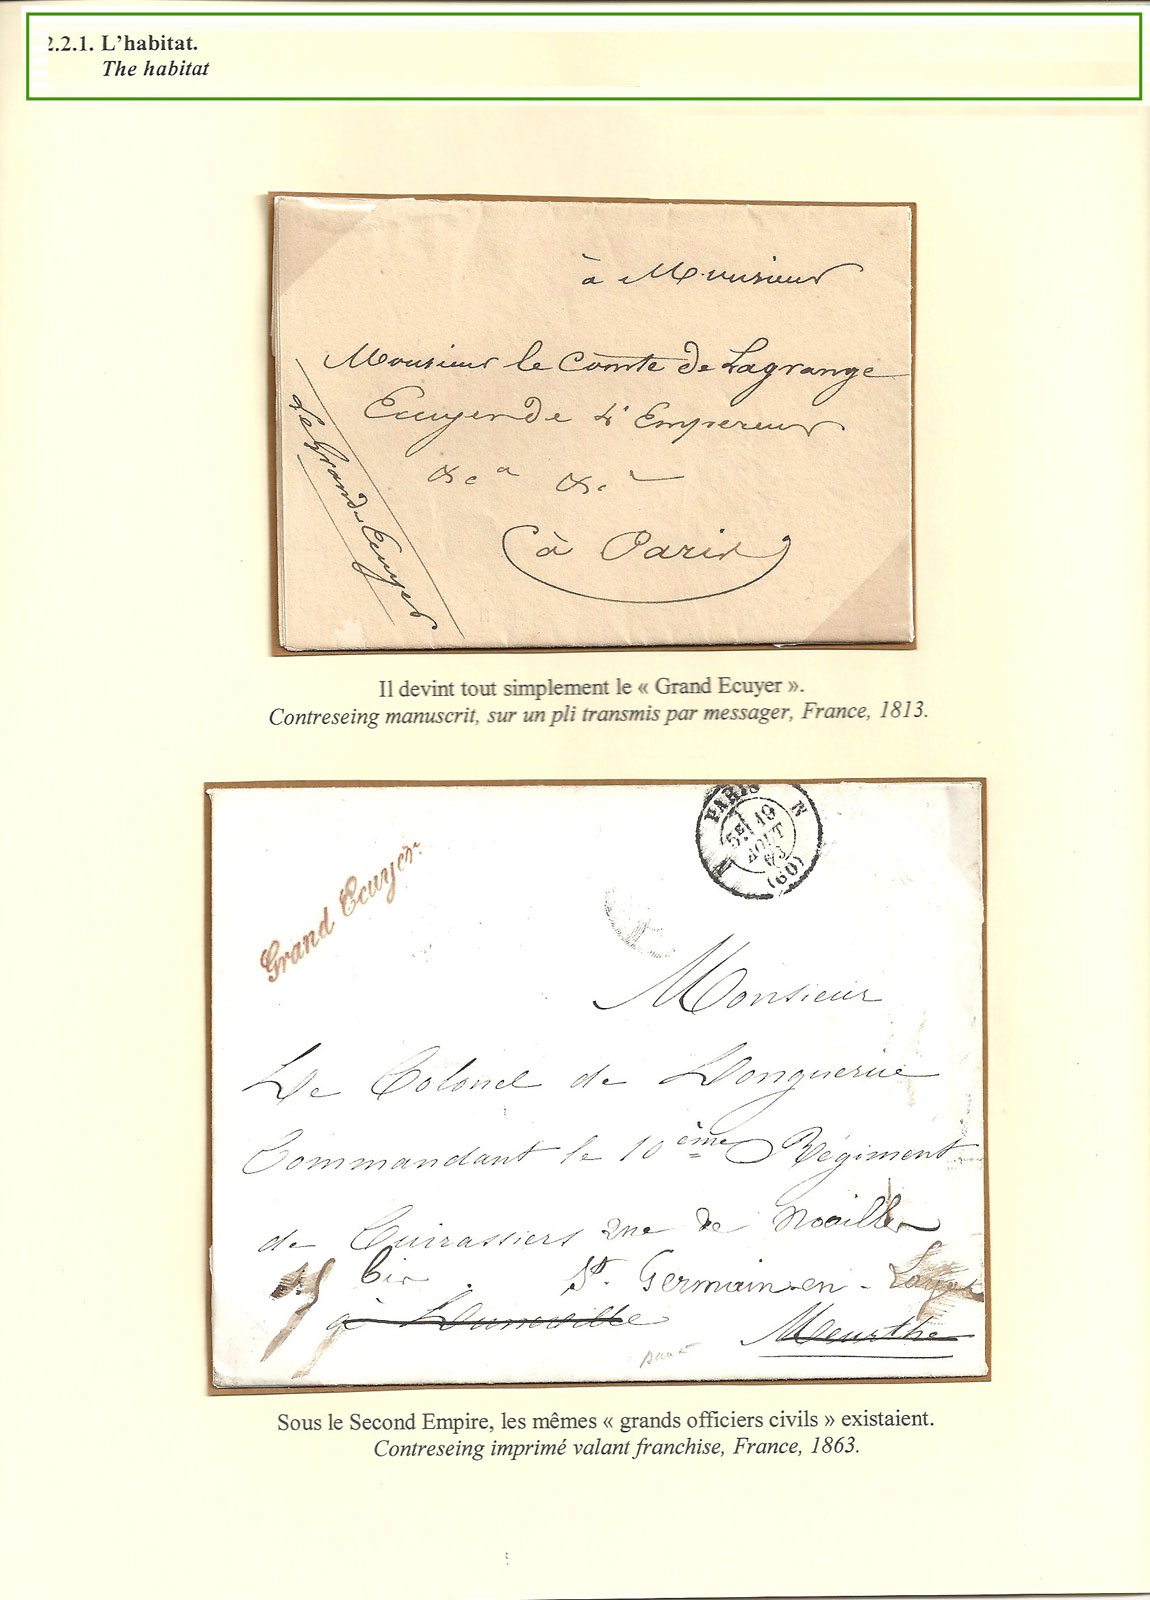 2.2.1. L'habitat.
The habitat
à Monsieur
Monsieur le Comte de Lagrange
Ecuyer de L'Empereur
&c.a &c.a
à Paris
Le Grand Ecuyer
Il devint tout simplement le « Grand Ecuyer ».
Contreseing manuscrit, sur un pli transmis par messager, France, 1813.
PARIS
5E 19
AOUT
63
(60)
Grand Ecuyer.
Monsieur
Le Colonel de Longuerue
Commandant le 10ème Régiment
de Cuirassiers rue de Noailles
bis St. Germain-en-Laye
à Luneville
Meurthe
Sous le Second Empire, les mêmes « grands officiers civils » existaient.
Contreseing imprimé valant franchise, France, 1863.